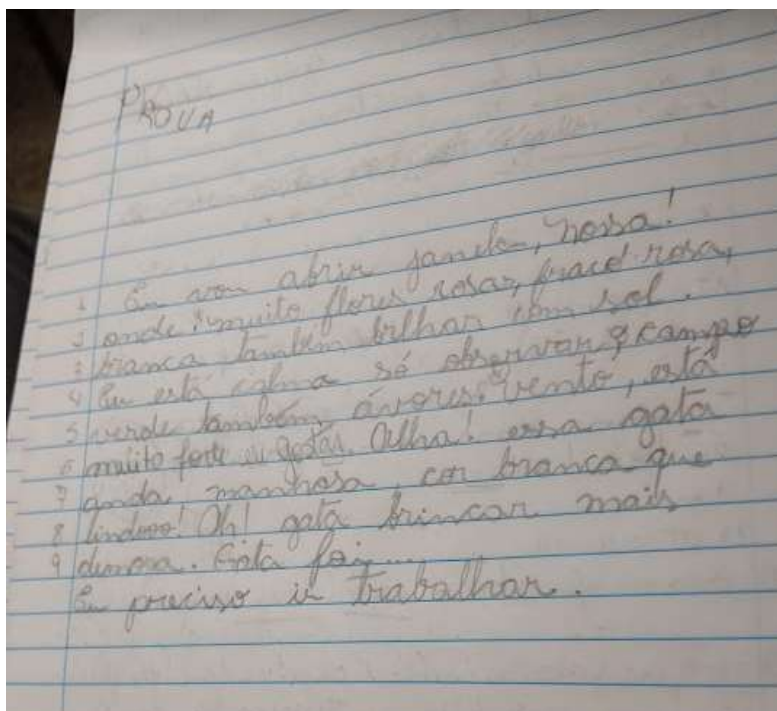 PROVA
1 Eu vou abrir janela, nossa!
2 onde muito flores rosar, rosa,
3 branca também brilhar com sol.
4 Eu está calma só observar campo
5 verde também ávores vento, está
6 muito forte eu gostar. Olha! essa gata
7 anda manhosa, cor branca que
8 lindooo! Oh! gata brincar mais
9 demora. Gata foi....
Eu preciso ir trabalhar.